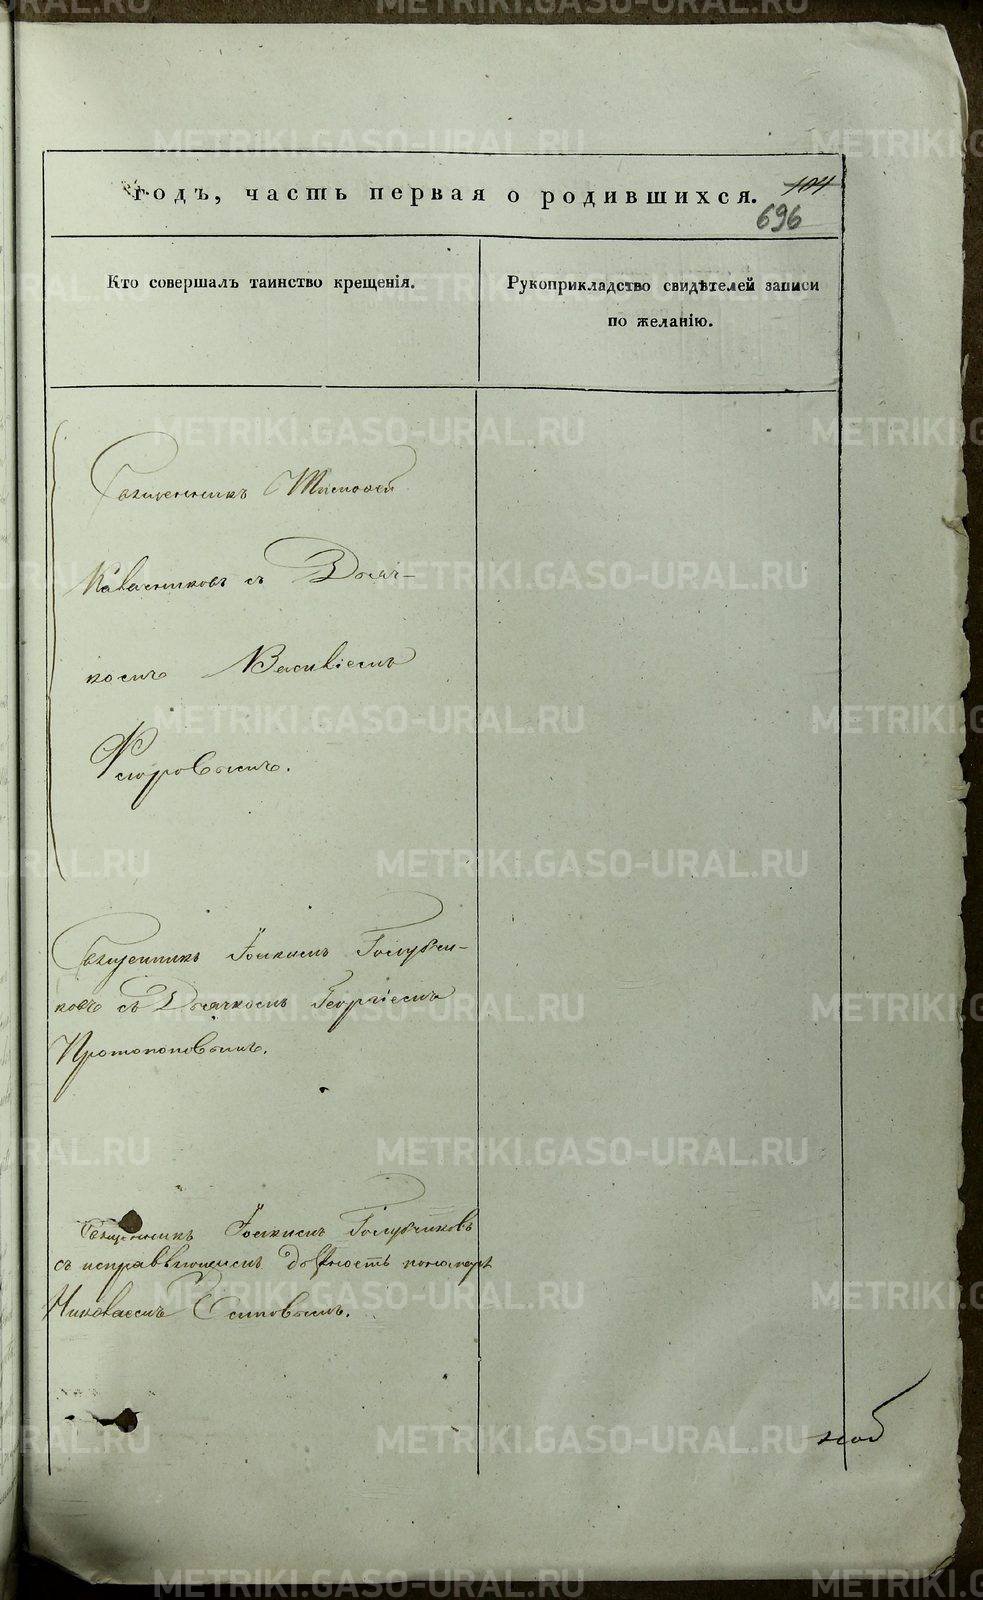 METRIKI.GASO-URAL.RU
годъ, часть первая о родившихся.
104
696
Кто совершалъ таинство крещенія.
Рукоприкладство свидѣтелей записи
по желанію.
Священникъ Тимофей
Калачниковъ съ Дьяч-
комъ Василіемъ
Флоровымъ.
Священникъ Іоакимъ Голубчи-
ковъ съ Дьячкомъ Георгіемъ
Протопоповымъ.
Священникъ Іоакимъ Голубчиковъ
съ исправляющимъ должность пономаря
Николаемъ Осиповымъ.